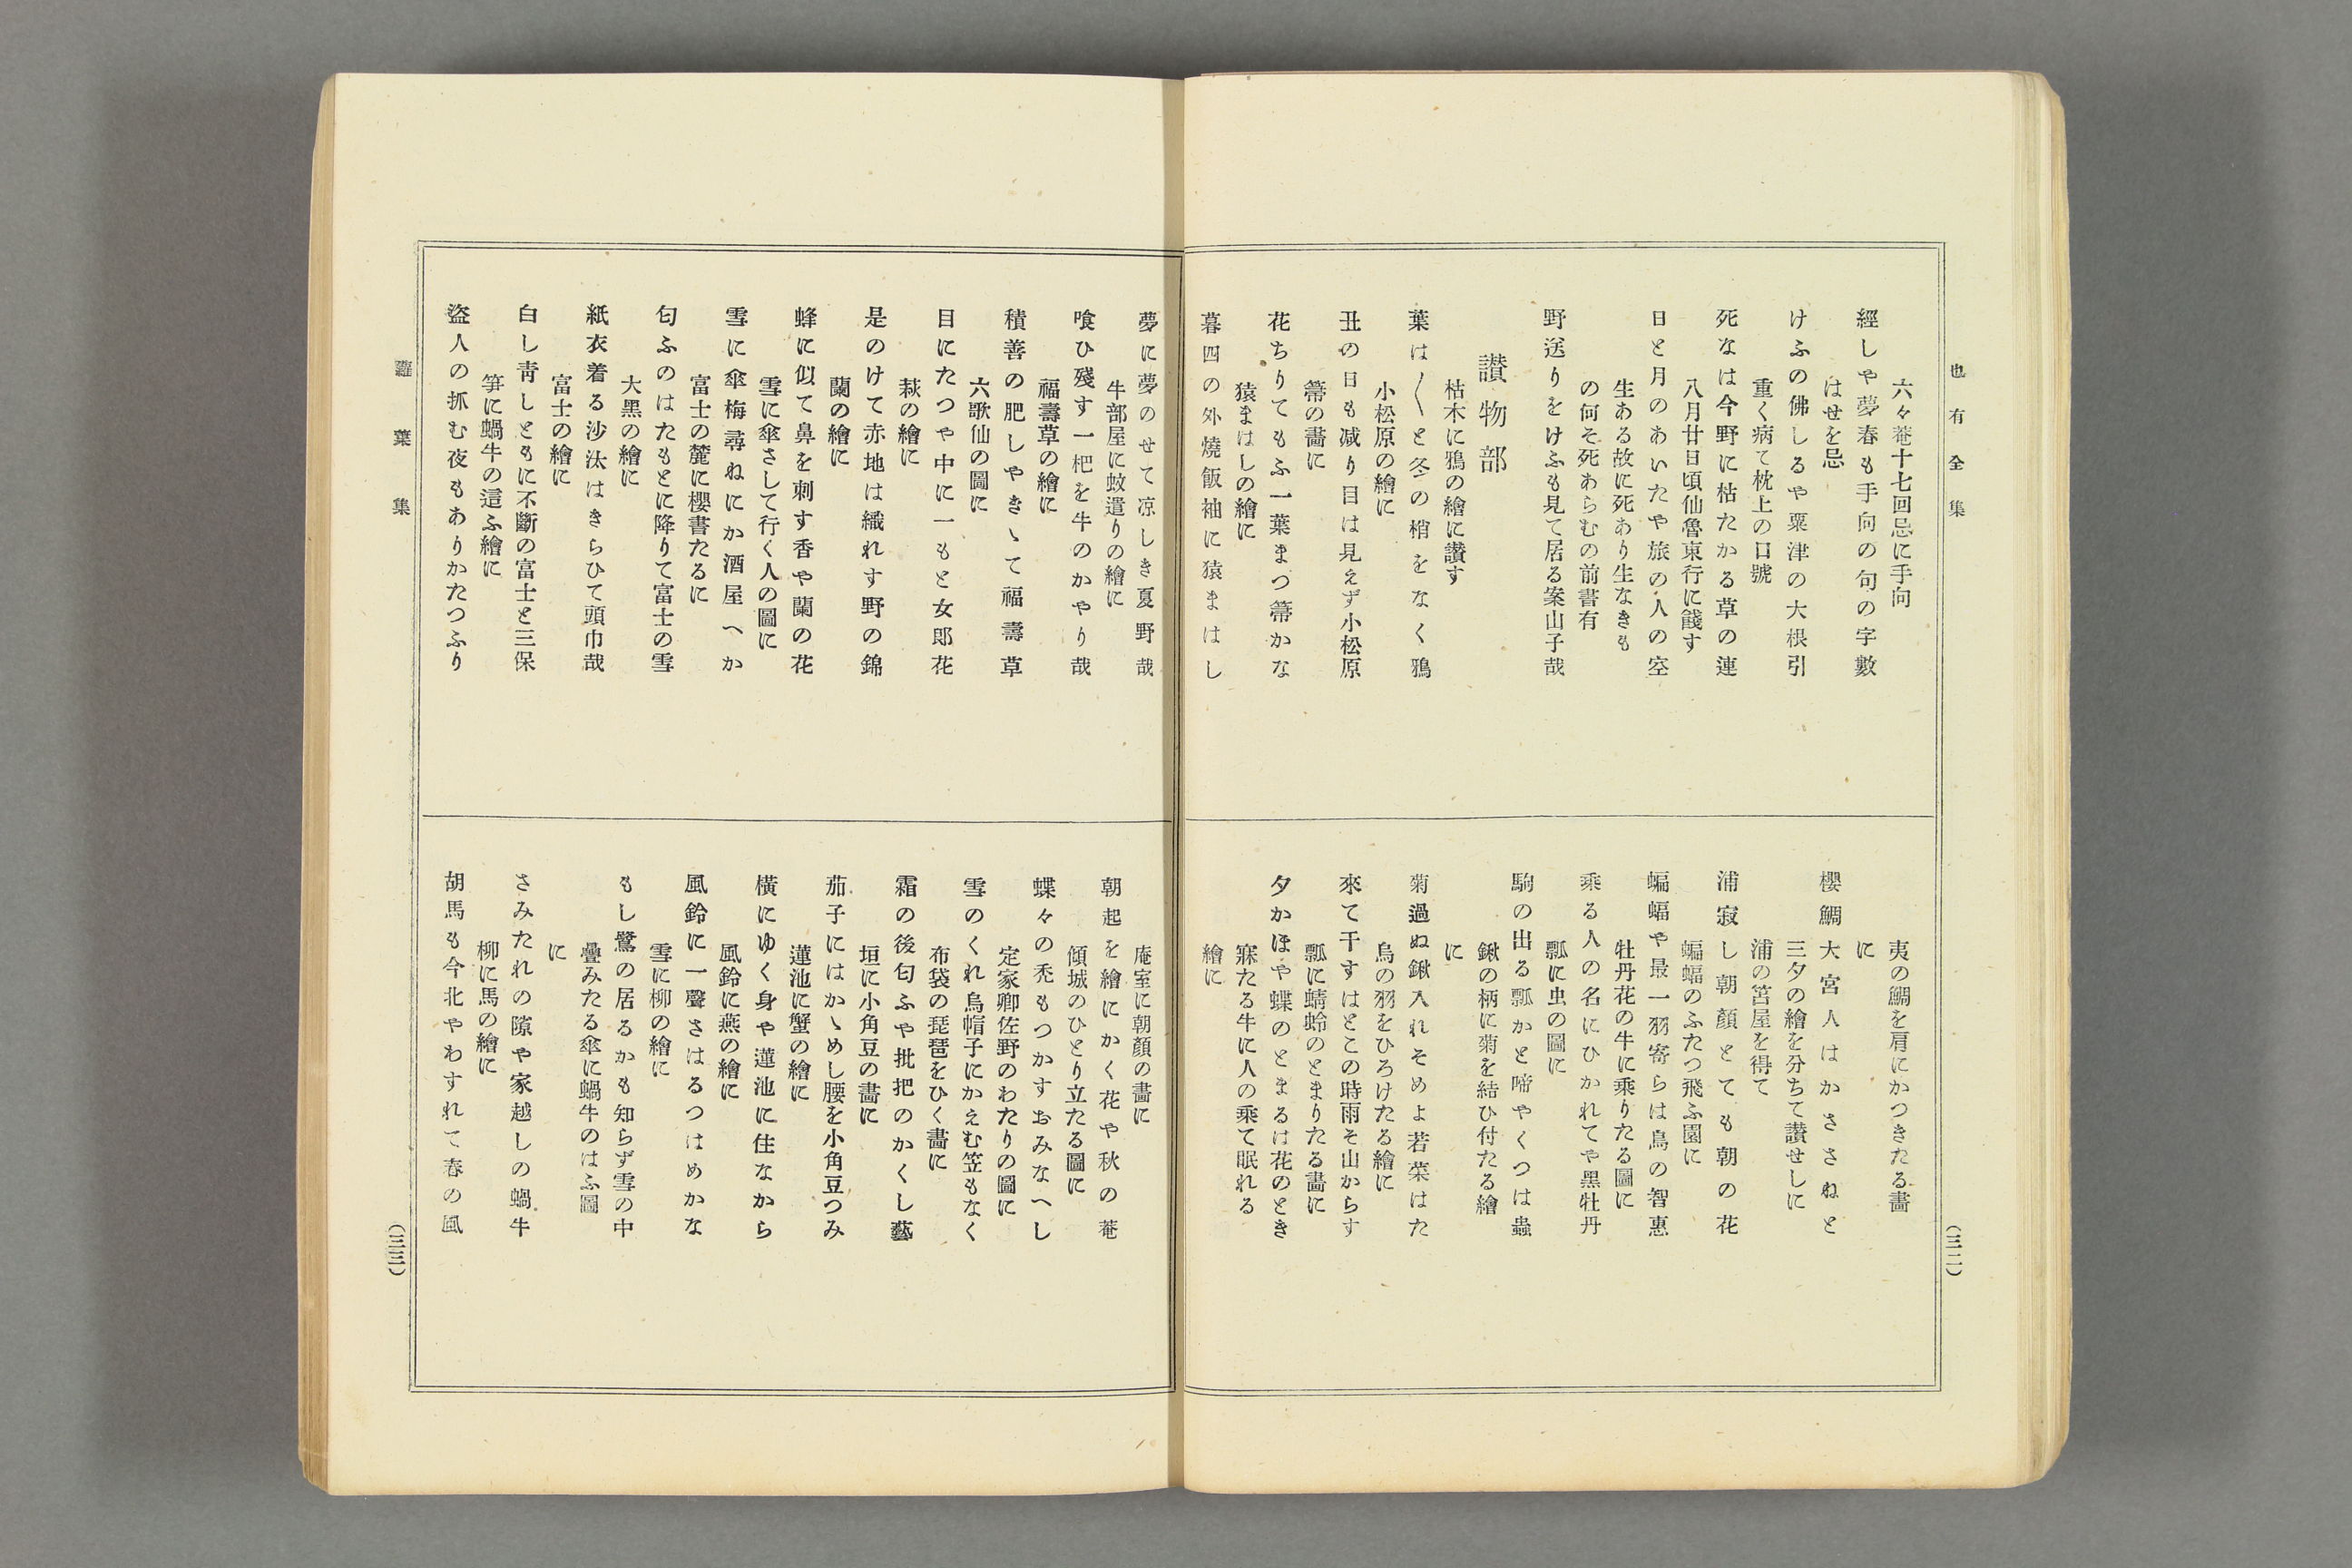 也有全集
六々菴十七回忌に手向
經しや夢春も手向の句の字數
はせを忌
けふの佛しるや粟津の大根引
重く病て枕上の口號
死なは今野に枯たかる草の連
八月廿日頃仙魯東行に餞す
日と月のあいたや旅の人の空
生ある故に死あり生なきも
の何そ死あらむの前書有
野送りをけふも見て居る案山子哉
讃物部
枯木に鴉の繪に讃す
葉は〳〵と冬の梢をなく鴉
小松原の繪に
丑の日も減り目は見えず小松原
箒の畵に
花ちりてもふ一葉まつ箒かな
猿まはしの繪に
暮四の外燒飯袖に猿まはし
夷の鯛を肩にかつきたる畵
に
櫻鯛大宮人はかささねと
三夕の繪を分ちて讃せしに
浦の笘屋を得て
浦寂し朝顏とても朝の花
蝙蝠のふたつ飛ふ圖に
蝙蝠や最一羽寄らは鳥の智惠
牡丹花の牛に乘りたる圖に
乘る人の名にひかれてや黑牡丹
瓢に虫の圖に
駒の出る瓢かと啼やくつは蟲
鍬の柄に菊を結ひ付たる繪
に
菊過ぬ鍬入れそめよ若菜はた
烏の羽をひろけたる繪に
來て干すはとこの時雨そ山からす
瓢に蜻蛉のとまりたる畵に
夕かほや蝶のとまるは花のとき
寐たる牛に人の乘て眠れる
繪に
(三二)
夢に夢のせて凉しき夏野哉
牛部屋に蚊遣りの繪に
喰ひ殘す一杷を牛のかやり哉
福壽草の繪に
積善の肥しやきゝて福壽草
六歌仙の圖に
目にたつや中に一もと女郎花
萩の繪に
是のけて赤地は織れす野の錦
蘭の繪に
蜂に似て鼻を刺す香や蘭の花
雪に傘さして行く人の圖に
雪に傘梅尋ねにか酒屋へか
富士の麓に櫻書たるに
匂ふのはたもとに降りて富士の雪
大黑の繪に
紙衣着る沙汰はきらひて頭巾哉
富士の繪に
白し靑しともに不斷の富士と三保
笋に蝸牛の這ふ繪に
盜人の抓む夜もありかたつふり
庵室に朝顏の畵に
朝起を繪にかく花や秋の菴
傾城のひとり立たる圖に
蝶々の禿もつかすおみなへし
定家卿佐野のわたりの圖に
雪のくれ烏帽子にかえむ笠もなく
布袋の琵琶をひく畵に
霜の後匂ふや批把のかくし藝
垣に小角豆の畵に
茄子にはかゝめし腰を小角豆つみ
蓮池に蟹の繪に
橫にゆく身や蓮池に住なから
風鈴に燕の繪に
風鈴に一聲さはるつはめかな
雪に柳の繪に
もし鷺の居るかも知らず雪の中
疊みたる傘に蝸牛のはふ圖
に
さみたれの隙や家越しの蝸牛
柳に馬の繪に
胡馬も今北やわすれて春の風
蘿葉集
(三三)